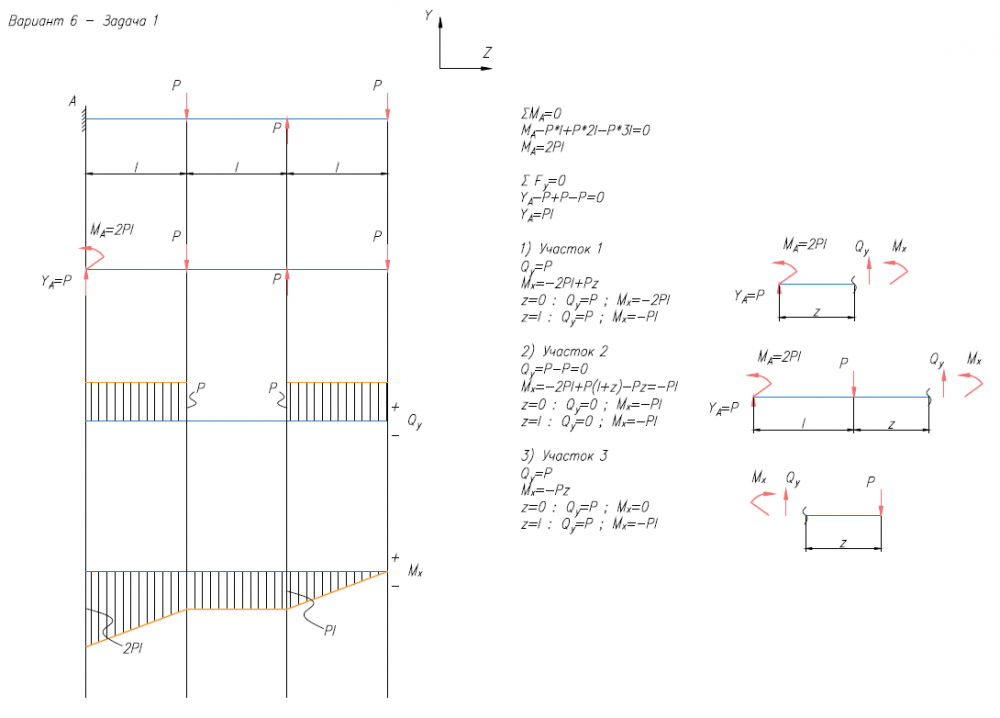 Вариант 6 - Задача 1
Y
Z
A
P
P
P
l
l
l
M_A=2Pl
P
P
Y_A=P
P
P
P
+
Q_y
-
+
M_x
-
2Pl
Pl
ΣM_A=0
M_A-P*l+P*2l-P*3l=0
M_A=2Pl
Σ F_y=0
Y_A-P+P-P=0
Y_A=Pl
1) Участок 1
Q_y=P
M_x=-2Pl+Pz
z=0 : Q_y=P ; M_x=-2Pl
z=l : Q_y=P ; M_x=-Pl
M_A=2Pl Q_y M_x
Y_A=P
z
2) Участок 2
Q_y=P-P=0
M_x=-2Pl+P(l+z)-Pz=-Pl
z=0 : Q_y=0 ; M_x=-Pl
z=l : Q_y=0 ; M_x=-Pl
M_A=2Pl P Q_y M_x
Y_A=P
l z
3) Участок 3
Q_y=P
M_x=-Pz
z=0 : Q_y=P ; M_x=0
z=l : Q_y=P ; M_x=-Pl
M_x Q_y P
z